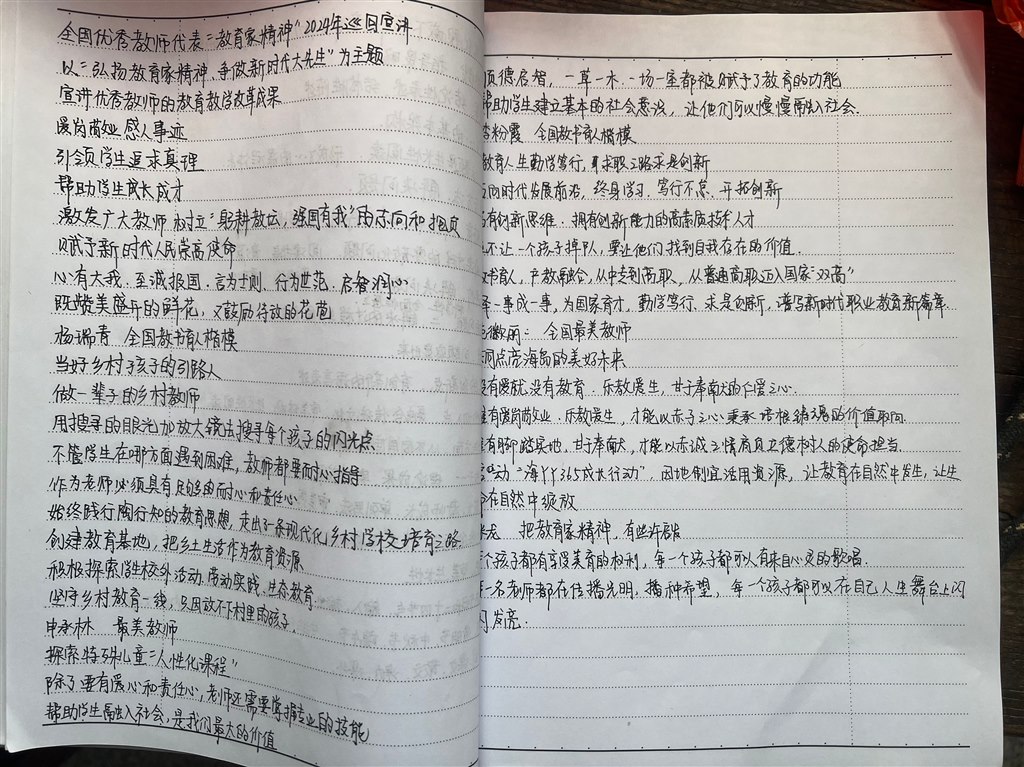 全国优秀教师代表“教育家精神”2024年巡回宣讲
以“弘扬教育家精神、争做新时代大先生”为主题
宣讲优秀教师的教育教学改革成果
爱岗敬业感人事迹
引领学生追求真理
帮助学生成长成才
激发广大教师树立“躬耕教坛，强国有我”的志向和抱负
赋予新时代人民崇高使命
心有大我、至诚报国，言为士则、行为世范，启智润心
既赞美盛开的鲜花，又鼓励待放的花苞
杨瑞青 全国教书育人楷模
当好乡村孩子的引路人
做一辈子的乡村教师
用搜寻的眼光加放大镜去搜寻每个孩子的闪光点
不管学生在哪方面遇到困难，教师都要耐心指导
作为老师必须具有足够的耐心和责任心
始终践行陶行知的教育思想，走出了一条现代化乡村学校培育之路
创建教育基地，把乡土生活作为教育资源
积极探索学生校外活动，劳动实践，生态教育
坚守乡村教育一线，只因放不下村里的孩子
申承林 最美教师
探索特殊儿童“人性化课程”
除了要有爱心和责任心，老师还需要掌握专业的技能
帮助学生融入社会，是我们最大的价值
顺德启智，一草一木一场一室都被赋予了教育的功能
帮助学生建立基本的社会意识，让他们可以慢慢融入社会
粉霞 全国教书育人楷模
教育人生勤学笃行，求职之路求是创新
向时代发展前沿，终身学习，笃行不怠，开拓创新
有创新思维，拥有创新能力的高素质技术人才
不让一个孩子掉队，要让他们找到自我存在的价值
书育人，产教融合，从中专到高职，从普通高职迈入国家“双高”
一事成一事，为国家育才，勤学笃行，求是创新，谱写新时代职业教育新篇章
丽：全国最美教师
同点亮海岛的美好未来
没有爱就没有教育，乐教爱生，甘于奉献的仁爱之心
有爱岗敬业，乐教爱生，才能以赤子之心秉承培根铸魂的价值取向
有脚踏实地，甘于奉献，才能以赤诚之情肩负立德树人的使命担当
动“海丫丫365成长行动”，因地制宜活用资源，让教育在自然中发生，让生
在自然中绽放
龙 把教育家精神，有些许诺
个孩子都有享受美育的权利，每一个孩子都可以有来自心灵的歌唱
一名老师都在传播光明，播种希望，每一个孩子都可以在自己人生舞台上闪
闪发亮